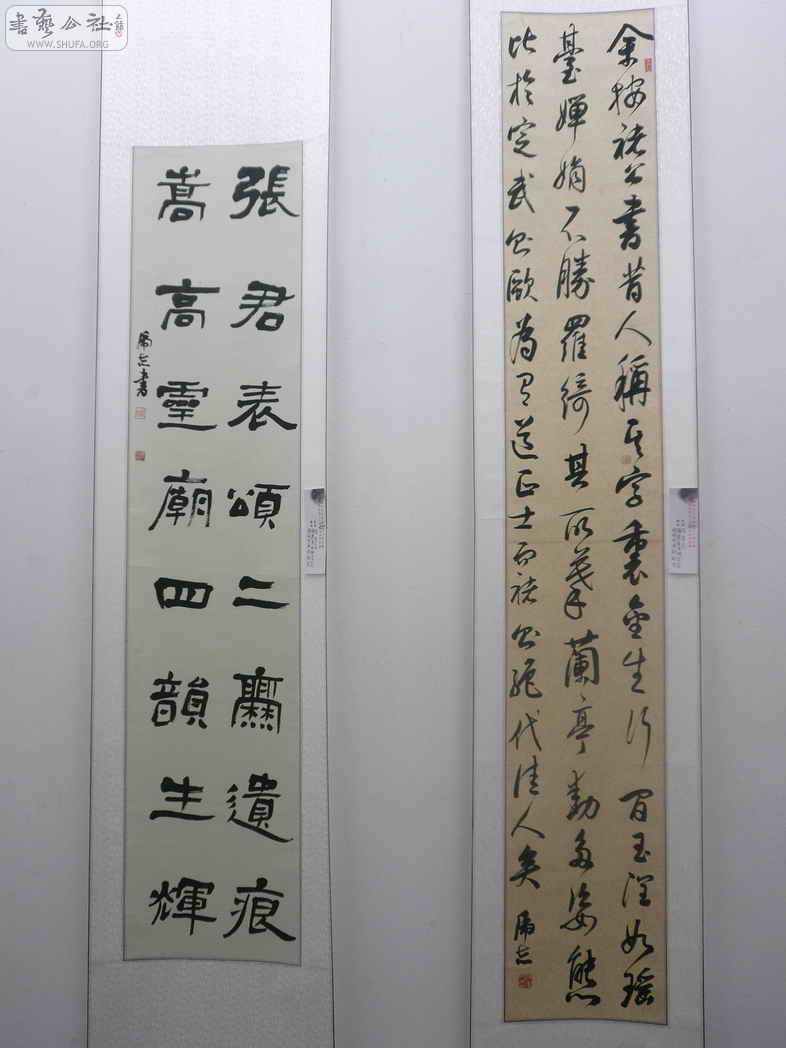 書藝公社
WWW.SHUFA.ORG
余按褚公書昔人稱其字裏金生行間玉潤如瑤
臺嬋娟不勝羅綺其所摹蘭亭動多姿態
比於定武出歐為有道正士而褚出絕代佳人矣
張君表頌二爨遺痕
嵩高靈廟四韻生輝